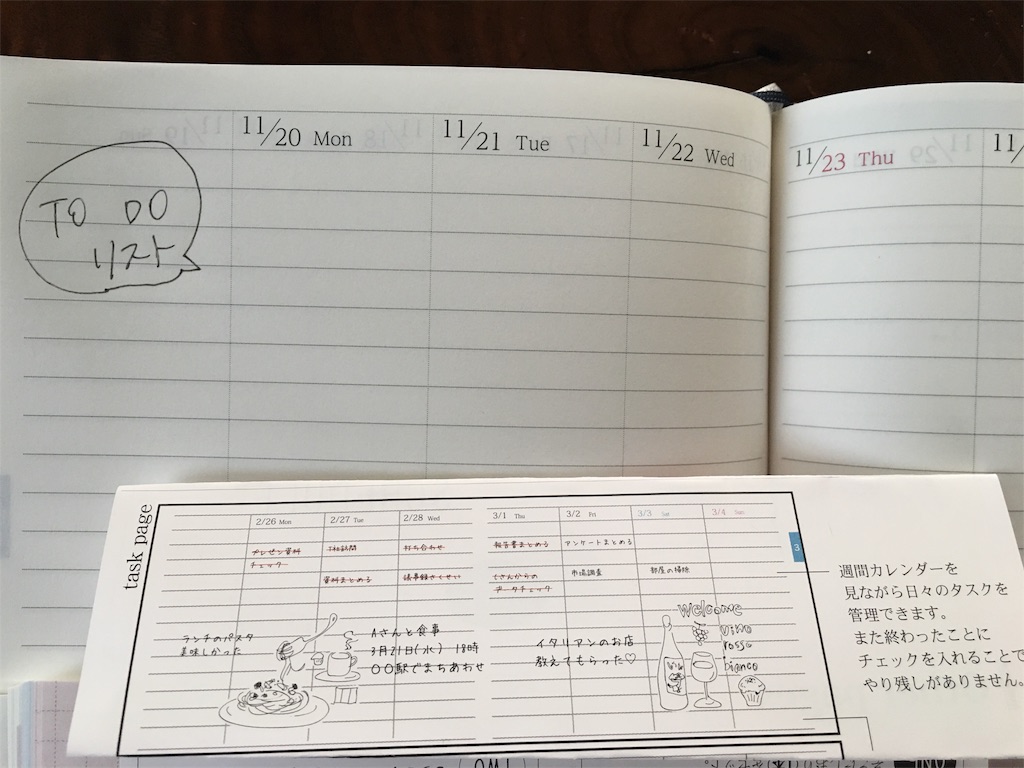 11/20 Mon
11/21 Tue
11/22 Wed
11/23 Thu
11/
TO DO
リスト
task page
2/26 Mon
2/27 Tue
2/28 Wed
3/1 Thu
3/2 Fri
3/3 Sat
3/4 Sun
プレゼン資料
チェック
資料まとめる
打ち合わせ
議事録さくせい
報告書まとめる
データチェック
アンケートまとめる
市場調査
部屋の掃除
3
ランチのパスタ
美味しかった
Aさんと食事
3月21日(水) 18時
〇〇駅でまちあわせ
イタリアンのお店
教えてもらった♡
welcome
vino
rosso
bianco
週間カレンダーを
見ながら日々のタスクを
管理できます。
また終わったことに
チェックを入れることで
やり残しがありません。